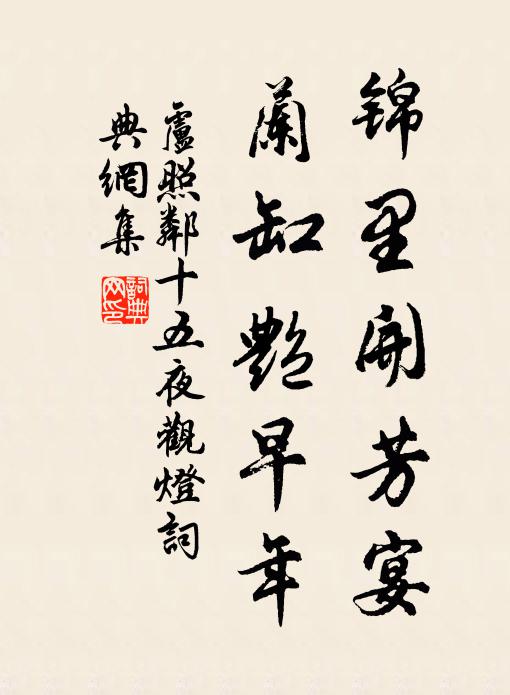 锦里開芳宴
蘭缸艷早年
盧照鄰十五夜觀燈詞
典網集
詞典
网印